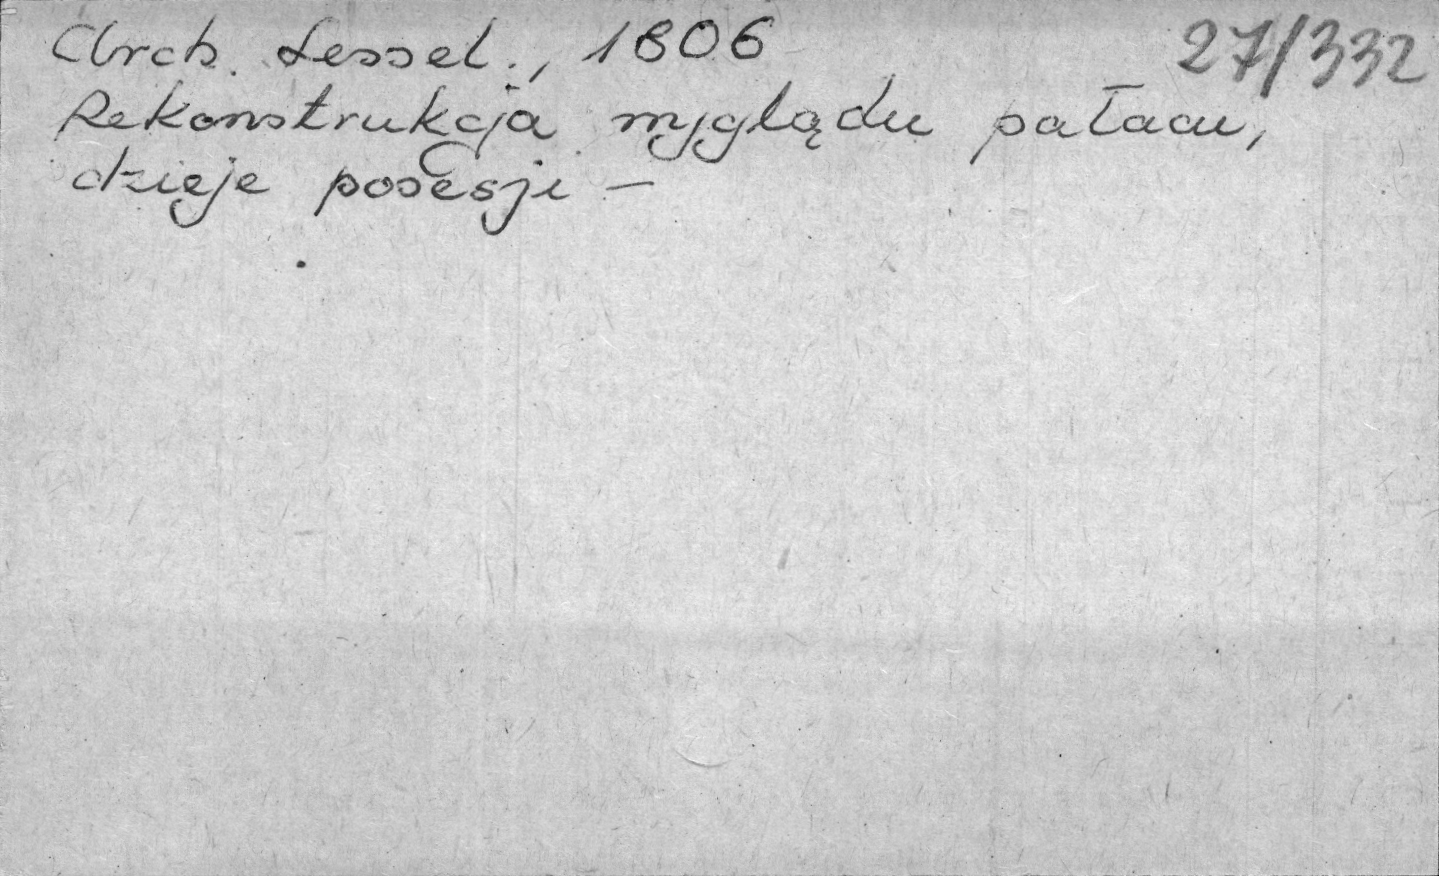 Arch. Lessel., 1806 27/332
Rekonstrukcja wyglądu pałacu,
dzieje posesji —